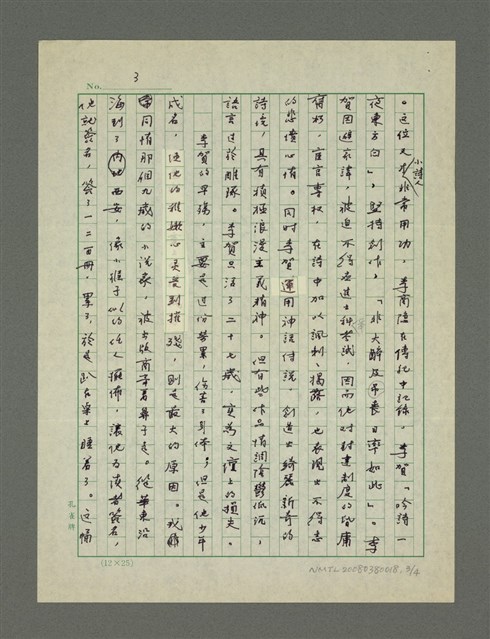 No. 3
。這位小詩人非常用功，李商隱在傳記中記錄，李賀「吟詩一
夜東方白」，堅持創作，「非大醉及吊喪日率如此」。李
賀因避家諱，被迫不得應進士科考試，因而他對封建制度的昏庸
腐朽，宦官專权，在詩中加以諷刺、揭露，也表現出不得志
的悲憤心情。同時李賀運用神話傳説，創造出綺麗新奇的
詩境，具有積極浪漫主義精神。但有些作品情調陰鬱低沉，
語言過於雕琢。李賀只活了二十七歲，實為文壇上的損失。
李賀的早殤，主要是過份勞累，傷害了身体；但是他少年
成名，使他的稚嫩心灵受到摧殘，則是最大的原因。我
同情那個九歲的小說家，被出版商牽着鼻子走。從華東沿
海到了內地西安，像小猴子似的任人擺佈，讓他為讀者簽名，
他就簽名，簽了一二百冊，累了，於是趴在桌上睡着了。這幅
孔雀牌
(12×25)
NMTL20080380018. 3/4